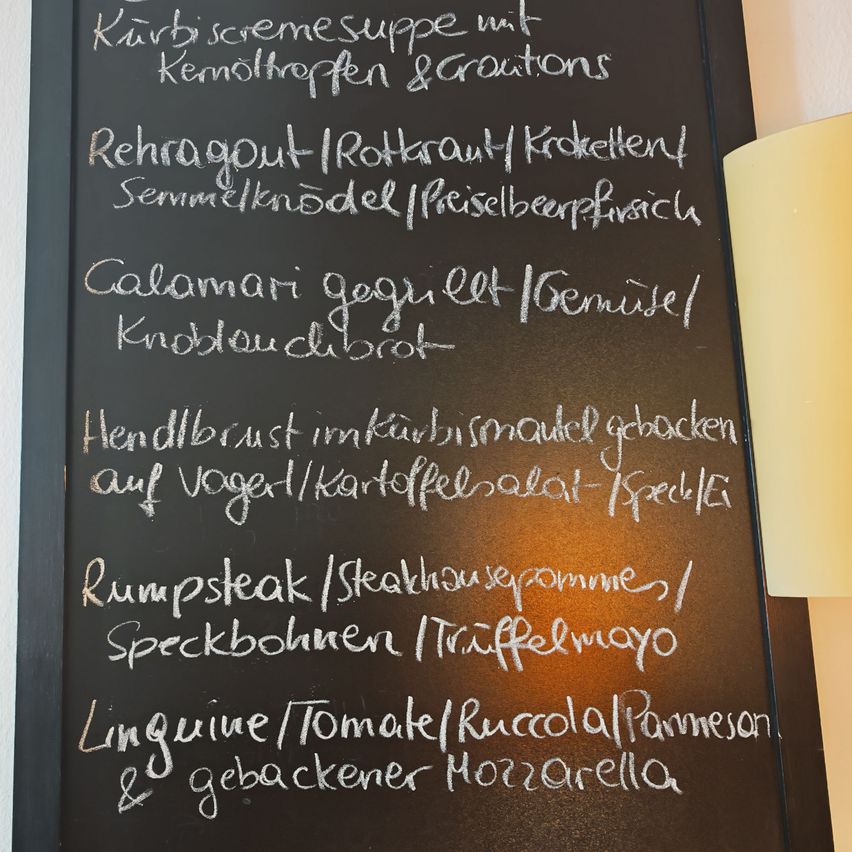 Kürbiscremesuppe mit
Kernöltropfen & Croutions
Rehragout/Rotkraut/Kroketten/
Semmelknödel/Preiselbeerpfirsich
Calamari gegrillt/Gemüse/
Knoblauchbrot
Hendlbrust im Kürbismantel gebacken
auf Vogerl/Kartoffelsalat/Speck/Ei
Rumpsteak/Steakhousepommes/
Speckbohnen/Trüffelmayo
Linguine/Tomate/Ruccola/Parmesan
& gebackener Mozzarella